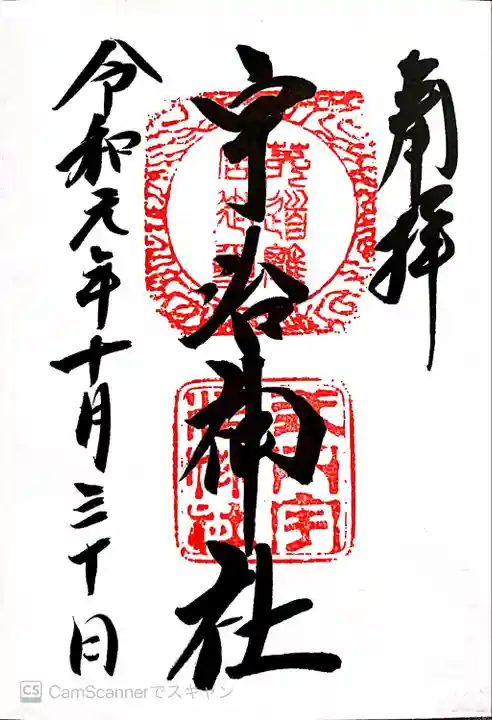 奉拝
宇治神社
式内宇
治神社
令和元年十月三十日
CS CamScannerでスキャン